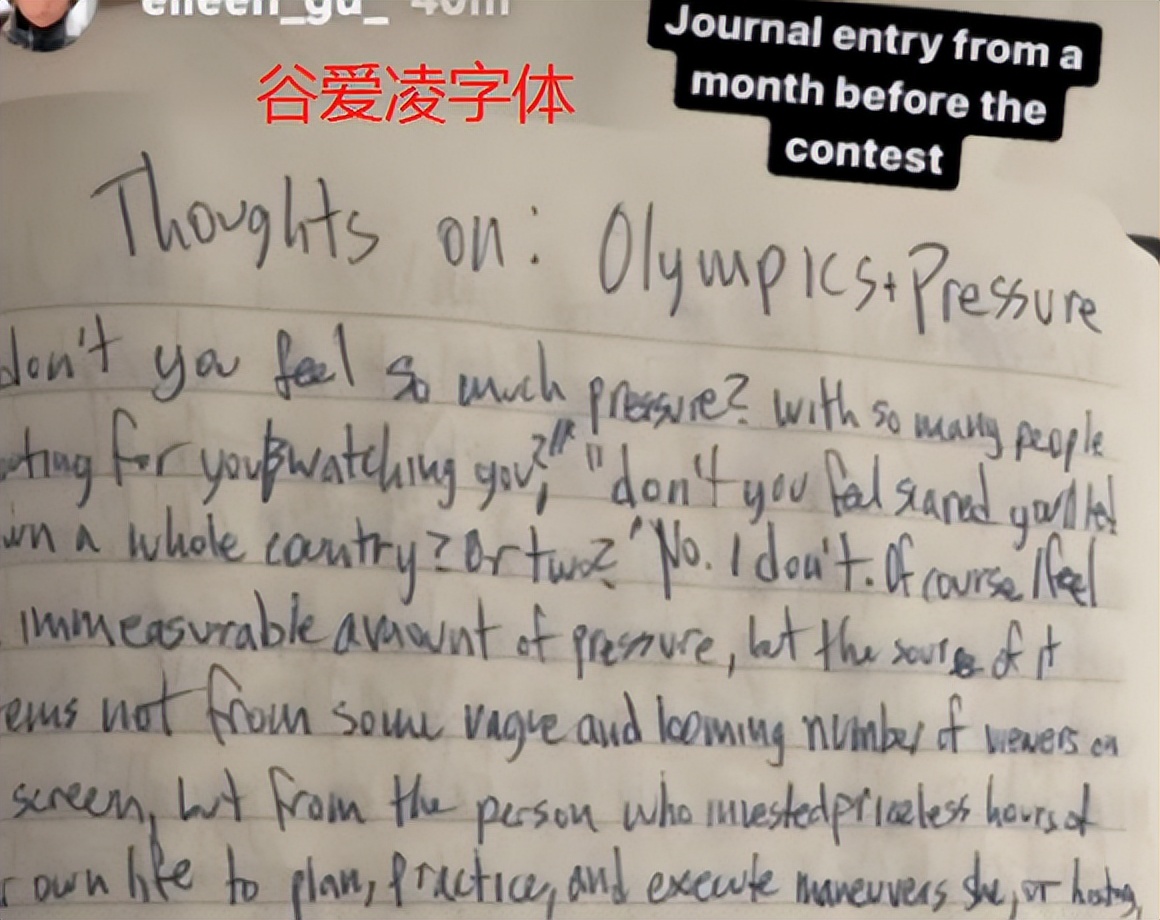 eileen_gu_ 40m
Journal entry from a
month before the
contest
谷爱凌字体
Thoughts on: Olympics + Pressure
don't you feel so much pressure? With so many people
for you & watching you?" "don't you feel scared you'll let
a whole country? Or two?" No. I don't. Of course I feel
immeasurable amount of pressure, but the source of it
not from some vague and looming number of viewers on
screen, but from the person who invested priceless hours of
own life to plan, practice, and execute maneuvers she, or